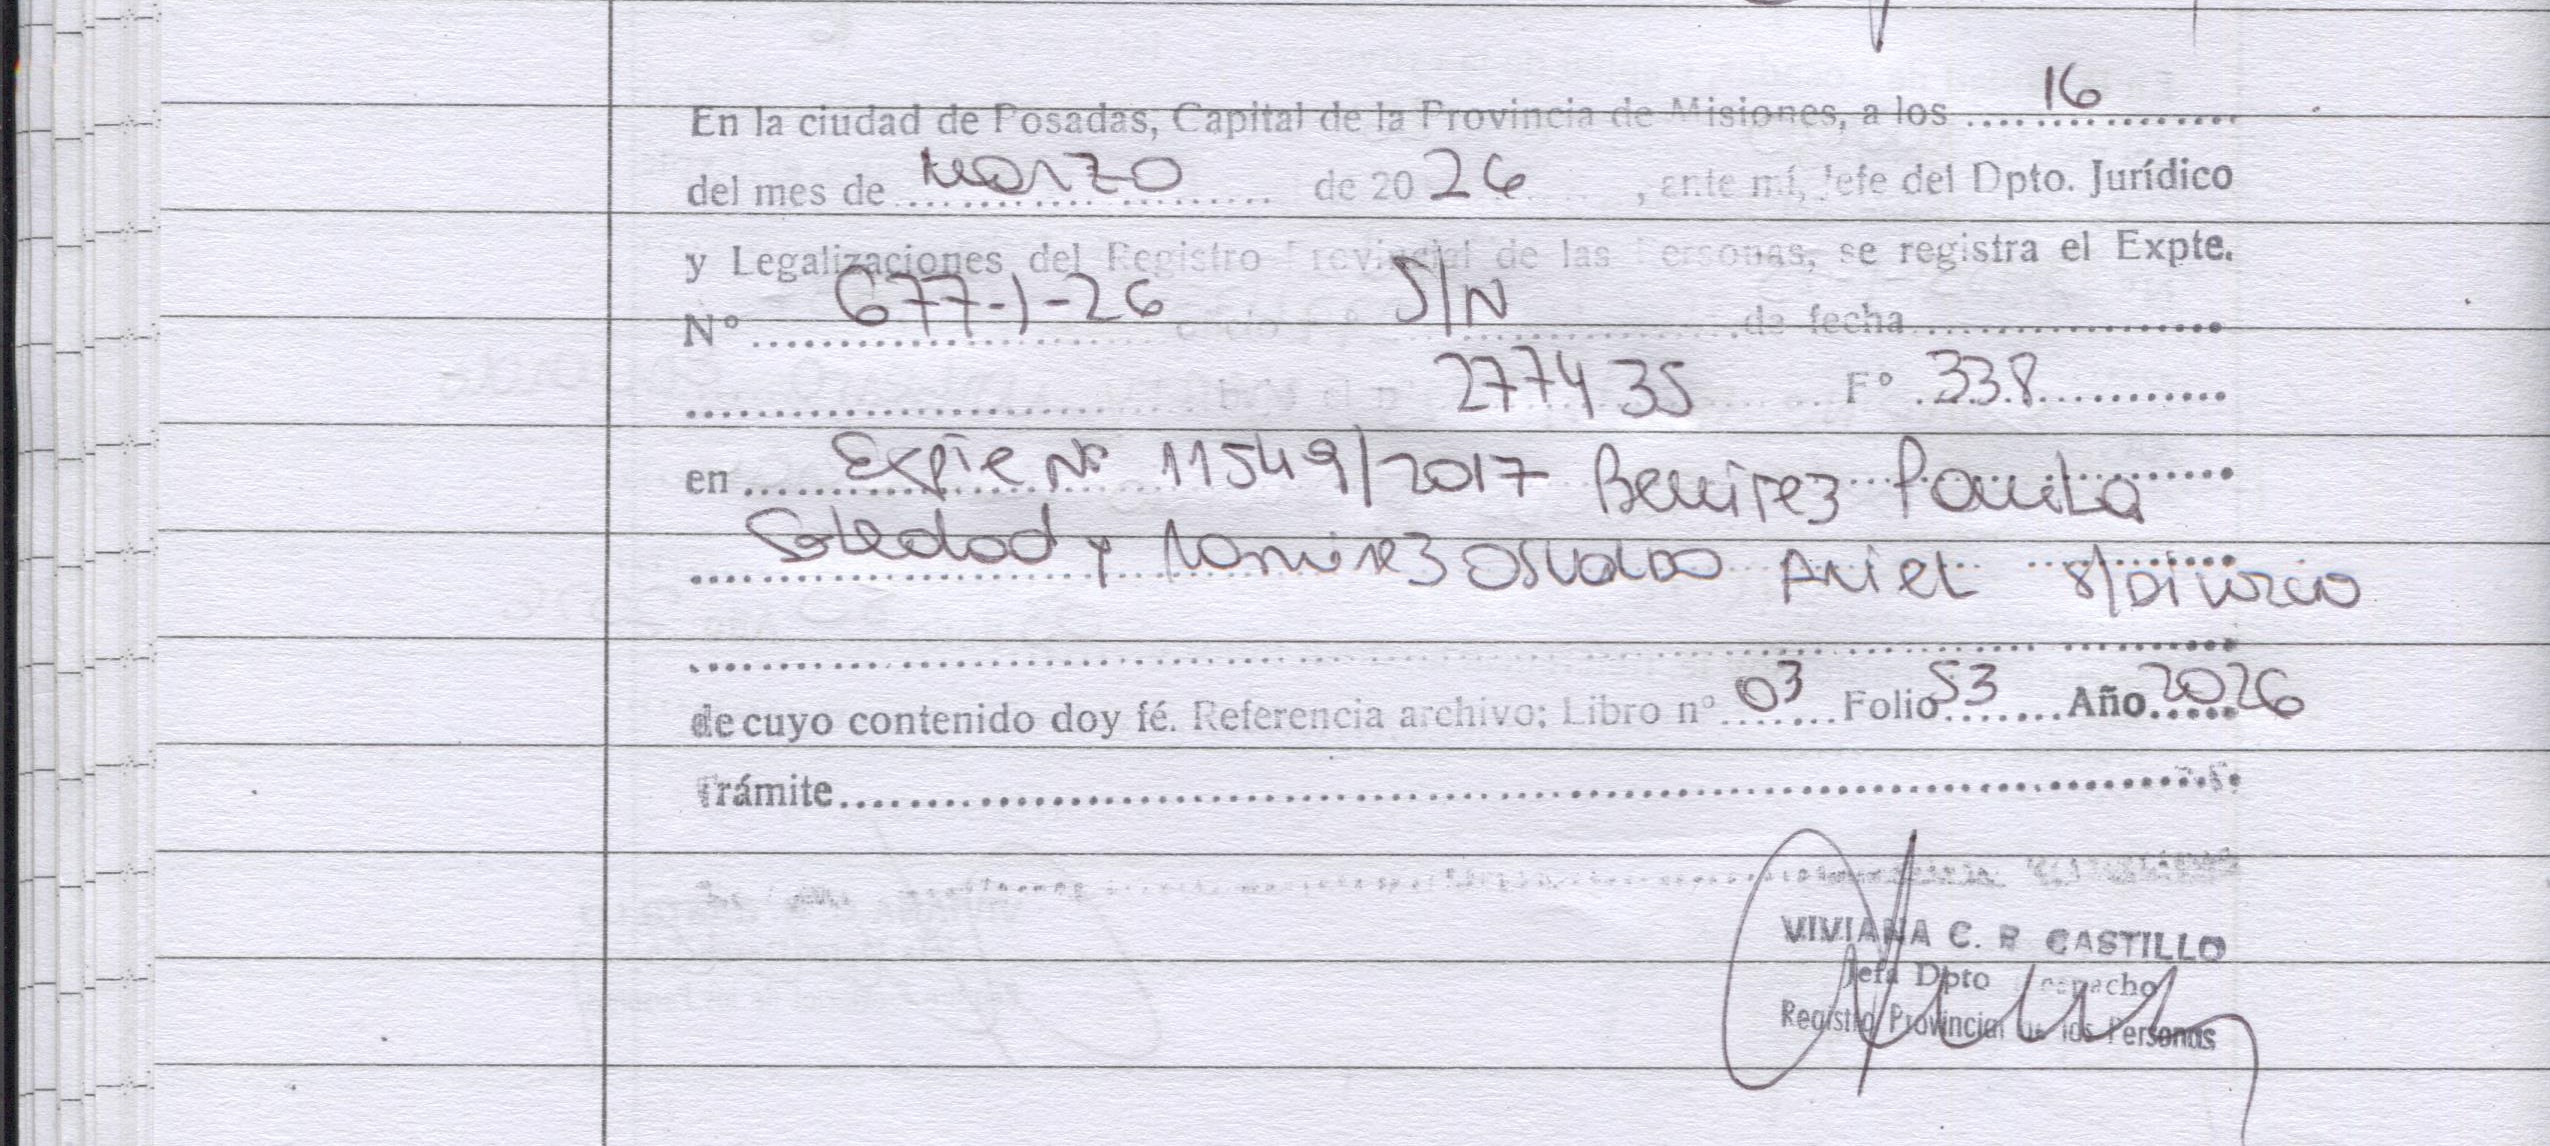 En la ciudad de Posadas, Capital de la Provincia de Misiones, a los 16
del mes de marzo de 20 26, ante mí, Jefe del Dpto. Jurídico
y Legalizaciones del Registro Provincial de las Personas, se registra el Expte.
N° 677-1-26 oficio S/N de fecha
277435 F° 338
en Expte N° 11549/2017 Benitez Pamela
Soledad y Ramirez Osvaldo Ariel s/Divorcio
de cuyo contenido doy fé. Referencia archivo: Libro n° 03 Folio 53 Año 2026
Trámite
VIVIANA C. R CASTILLO
Jefa Dpto Despacho
Registro Provincial de las Personas